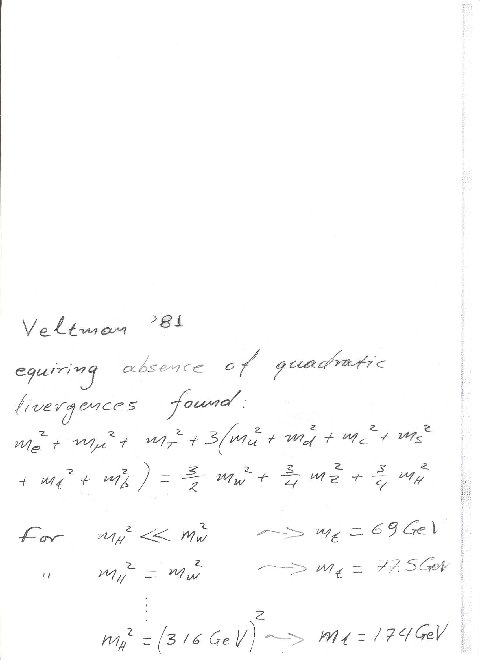 Veltman '81
equiring absence of quadratic
livergences found:
mₑ² + m_μ² + m_τ² + 3(m_u² + m_d² + m_c² + m_s²
+ m_t² + m_b²) = 3/2 m_W² + 3/4 m_Z² + 3/4 m_H²
For m_H² << m_W² → m_t = 69 GeV
" m_H² = m_W² → m_t = 77.5 GeV
⋮
m_H² = (316 GeV)² → m_t = 174 GeV